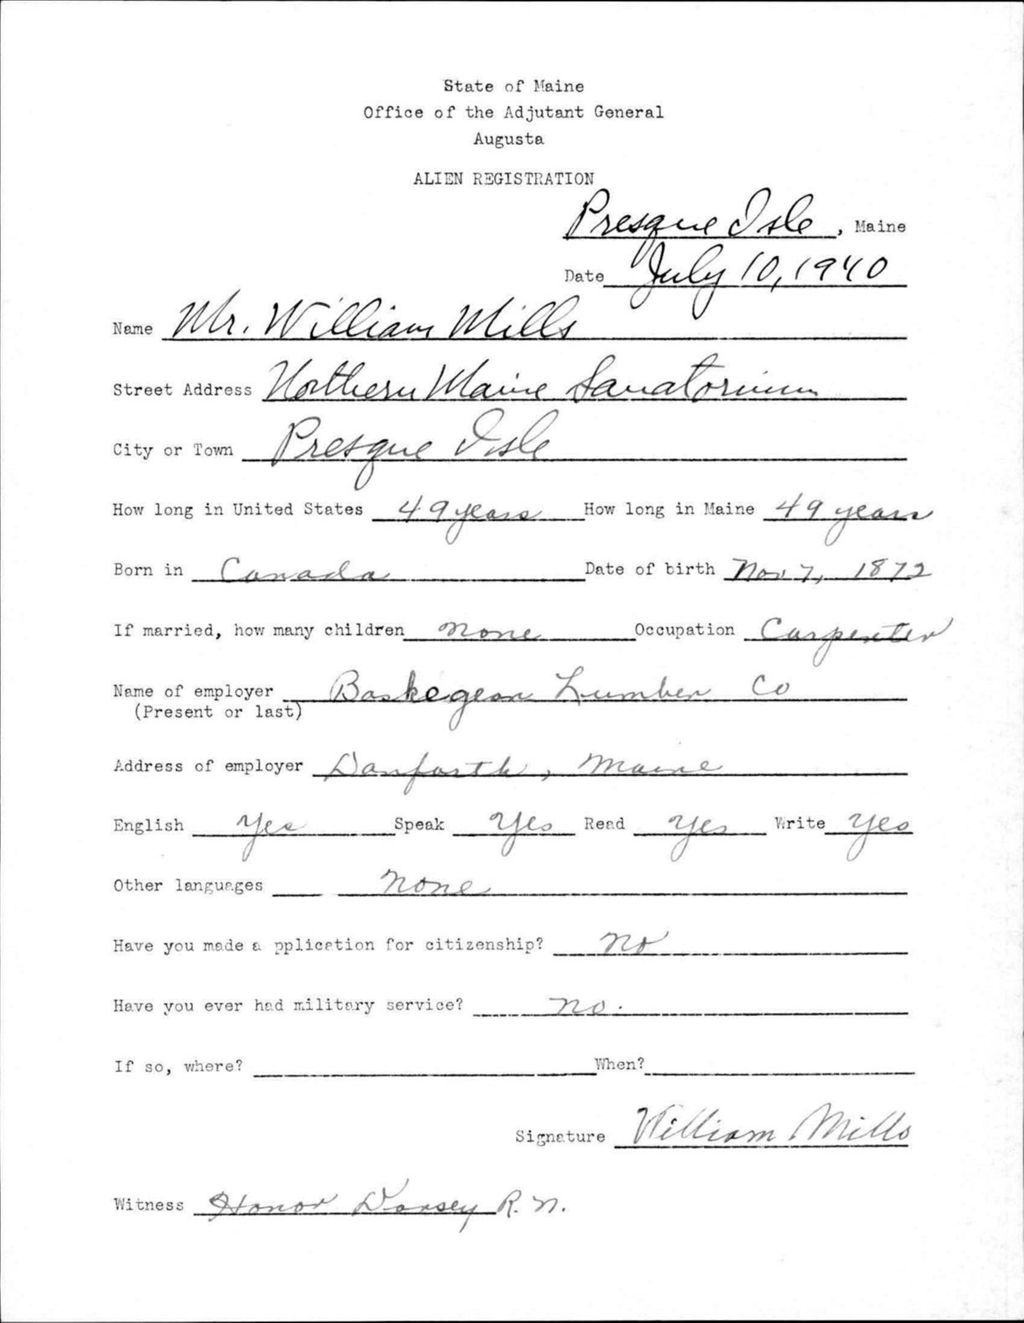 State of Maine
Office of the Adjutant General
Augusta
ALIEN REGISTRATION
Presque Isle, Maine
Date July 10, 1940
Name Mr. William Mills
Street Address Northern Maine Sanatorium
City or Town Presque Isle
How long in United States 49 years How long in Maine 49 years
Born in Canada Date of birth Nov 7, 1872
If married, how many children none Occupation Carpenter
Name of employer Baskegean Lumber Co
(Present or last)
Address of employer Danforth, Maine
English Yes Speak Yes Read Yes Write Yes
Other languages none
Have you made a pplication for citizenship? no
Have you ever had military service? no.
If so, where? When?
Signature William Mills
Witness Honor Dorsey R.N.